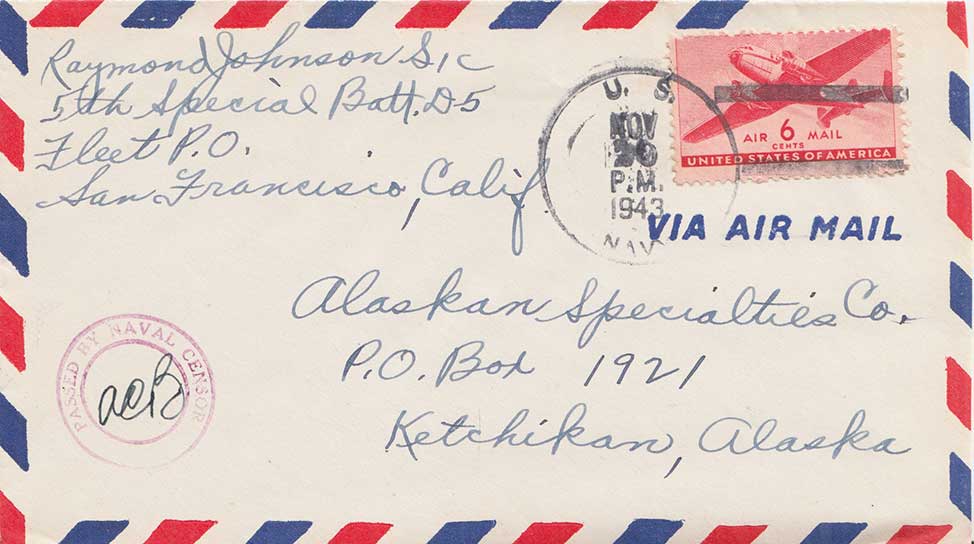 Raymond Johnson S1c
5th Special Batt. D5
Fleet P.O.
San Francisco, Calif.
U. S.
NOV
P.M.
1943
NAVY
AIR 6 MAIL
CENTS
UNITED STATES OF AMERICA
VIA AIR MAIL
Alaskan Specialties Co.
P.O. Box 1921
Ketchikan, Alaska
PASSED BY NAVAL CENSOR
acB